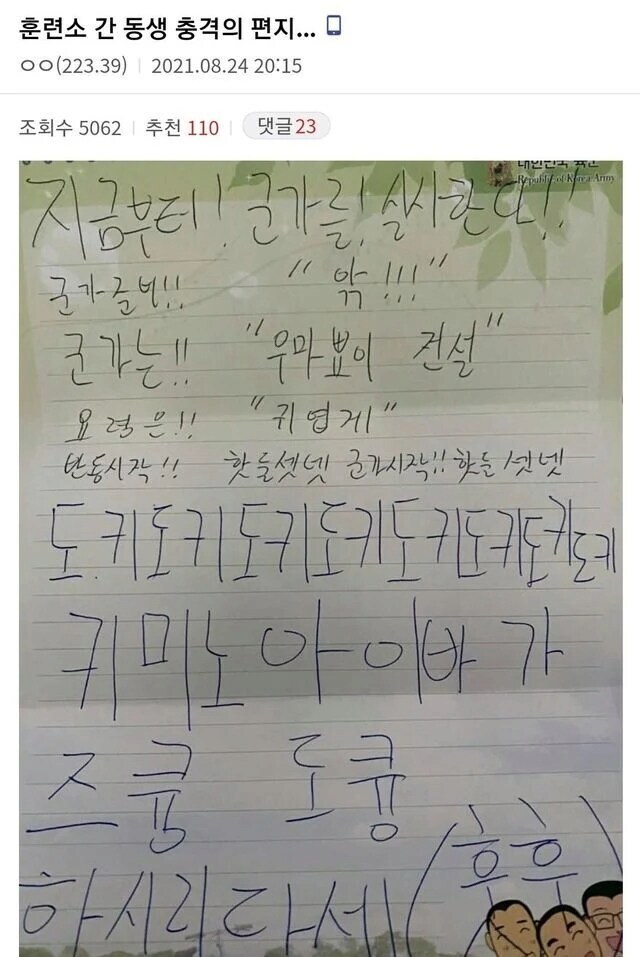 훈련소 간 동생 충격의 편지...
ㅇㅇ(223.39) 2021.08.24 20:15
조회수 5062 추천 110 댓글 23
대한민국 육군
Republic of Korea Army
지금부터! 군가를! 실시한다!!
군가준비!! "앆!!!"
군가는!! "우마뾰이 전설"
요령은!! "귀엽게"
반동시작!! 핫둘셋넷 군가시작!! 핫둘셋넷
도키도키도키도키도키도키도키도키
키미노아이바가
즈큥 도큥
하시리다세(후후)